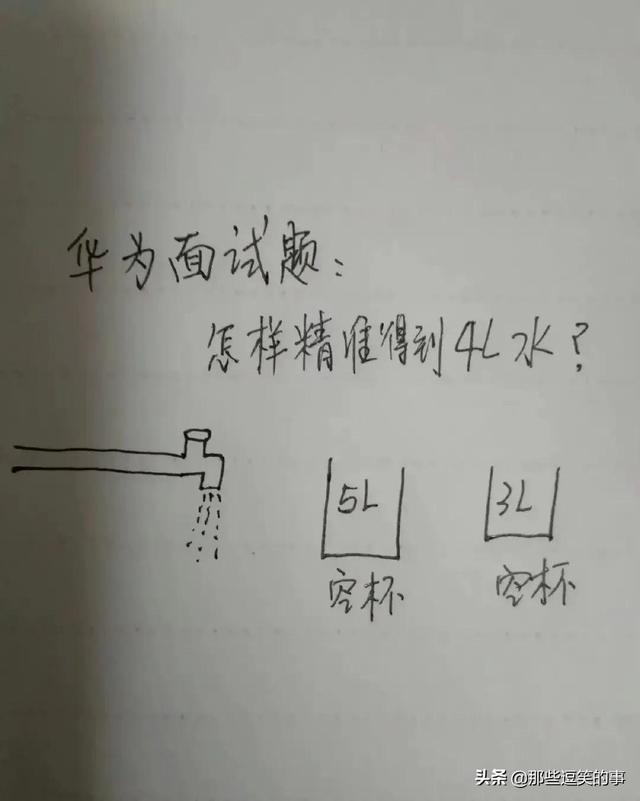 华为面试题：
怎样精准得到4L水？
5L 3L
空杯 空杯
头条 @那些逗笑的事